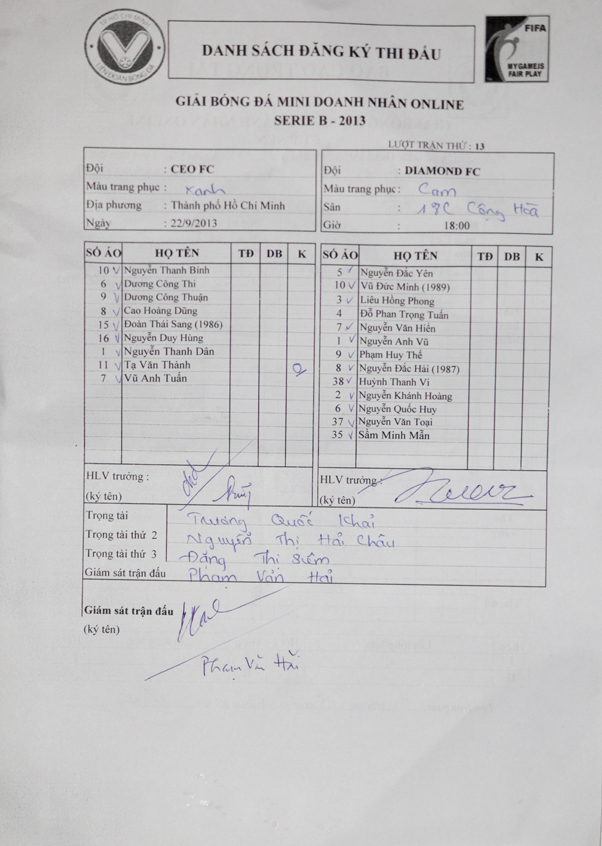 TP HỒ CHÍ MINH
LIÊN ĐOÀN BÓNG ĐÁ
DANH SÁCH ĐĂNG KÝ THI ĐẤU
FIFA
MY GAME IS
FAIR PLAY
GIẢI BÓNG ĐÁ MINI DOANH NHÂN ONLINE
SERIE B - 2013
LƯỢT TRẬN THỨ : 13
Đội : CEO FC
Màu trang phục : Xanh
Địa phương : Thành phố Hồ Chí Minh
Ngày : 22/9/2013
Đội : DIAMOND FC
Màu trang phục : Cam
Sân : 18C Cộng Hòa
Giờ : 18:00
SỐ ÁO HỌ TÊN TĐ DB K
10 Nguyễn Thanh Bính
6 Dương Công Thi
9 Dương Công Thuận
8 Cao Hoàng Dũng
15 Đoàn Thái Sang (1986)
16 Nguyễn Duy Hùng
1 Nguyễn Thanh Dân
11 Tạ Văn Thành
7 Vũ Anh Tuấn
SỐ ÁO HỌ TÊN TĐ DB K
5 Nguyễn Đắc Yên
10 Vũ Đức Minh (1989)
3 Liêu Hồng Phong
4 Đỗ Phan Trọng Tuấn
7 Nguyễn Văn Hiển
1 Nguyễn Anh Vũ
9 Phạm Huy Thể
8 Nguyễn Đắc Hải (1987)
38 Huỳnh Thanh Vi
2 Nguyễn Khánh Hoàng
6 Nguyễn Quốc Huy
37 Nguyễn Văn Toại
35 Sầm Minh Mẫn
HLV trưởng :
(ký tên)
HLV trưởng :
(ký tên)
Trọng tài Trương Quốc Khải
Trọng tài thứ 2 Nguyễn Thị Hải Châu
Trọng tài thứ 3 Đặng Thị Siêm
Giám sát trận đấu Phạm Văn Hải
Giám sát trận đấu
(ký tên)
Phạm Văn Hải